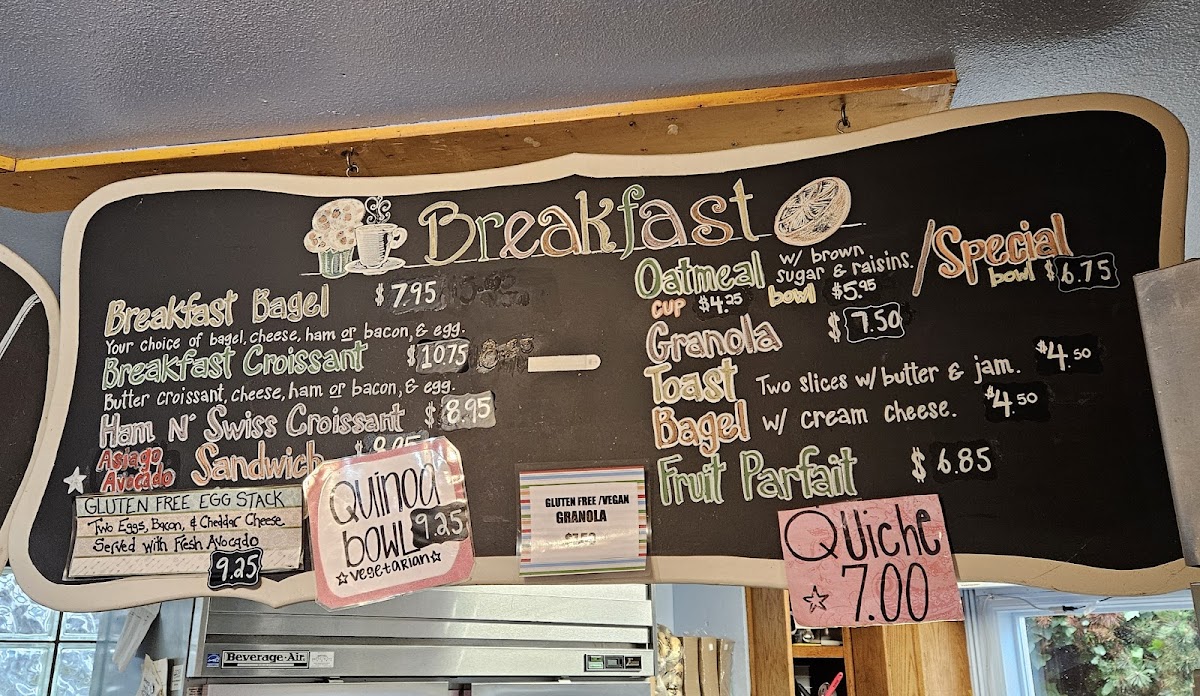 Breakfast
Breakfast Bagel $7.95
Your choice of bagel, cheese, ham or bacon, & egg.
Breakfast Croissant $10.75
Butter croissant, cheese, ham or bacon, & egg.
Ham N' Swiss Croissant $8.95
Asiago
Avocado Sandwich
GLUTEN FREE EGG STACK
Two Eggs, Bacon, & Cheddar Cheese.
Served with Fresh Avocado
9.25
QUINOA
BOWL 9.25
☆VEGETARIAN☆
GLUTEN FREE /VEGAN
GRANOLA
Oatmeal w/ brown
sugar & raisins. / Special
cup $4.25 bowl $5.95 bowl $6.75
Granola $7.50
Toast Two slices w/ butter & jam. $4.50
Bagel w/ cream cheese. $4.50
Fruit Parfait $6.85
Quiche
☆ 7.00
Beverage-Air